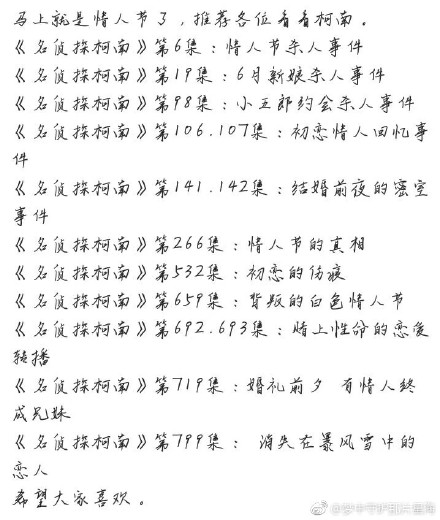 马上就是情人节了，推荐各位看看柯南。
《名侦探柯南》第6集：情人节杀人事件
《名侦探柯南》第19集：6月新娘杀人事件
《名侦探柯南》第98集：小五郎约会杀人事件
《名侦探柯南》第106.107集：初恋情人回忆事
件
《名侦探柯南》第141.142集：结婚前夜的密室
事件
《名侦探柯南》第266集：情人节的真相
《名侦探柯南》第532集：初恋的伤痕
《名侦探柯南》第659集：背叛的白色情人节
《名侦探柯南》第692.693集：赌上性命的恋爱
转播
《名侦探柯南》第719集：婚礼前夕 有情人终
成兄妹
《名侦探柯南》第799集： 消失在暴风雪中的
恋人
希望大家喜欢。